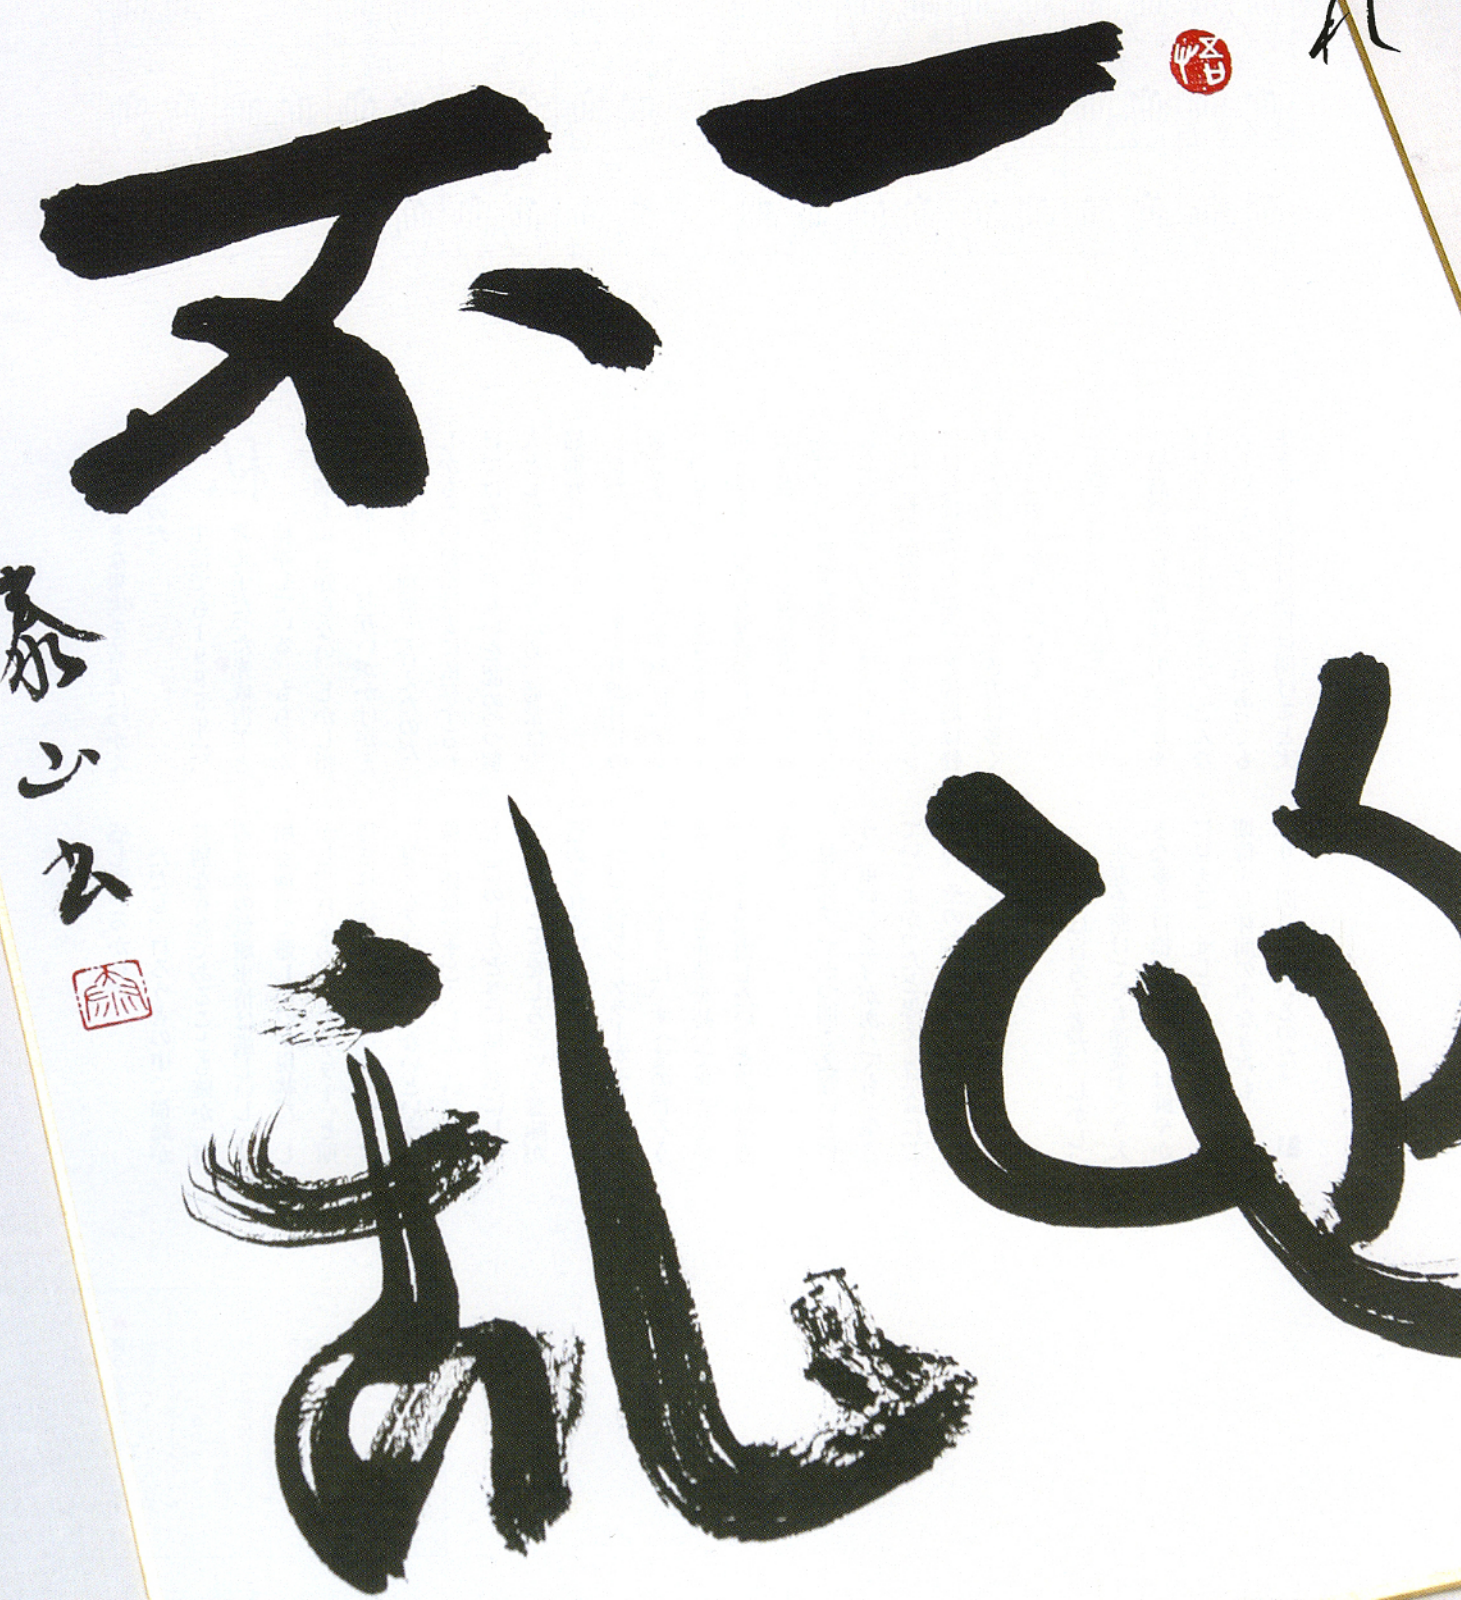 一心
不乱
泰山書